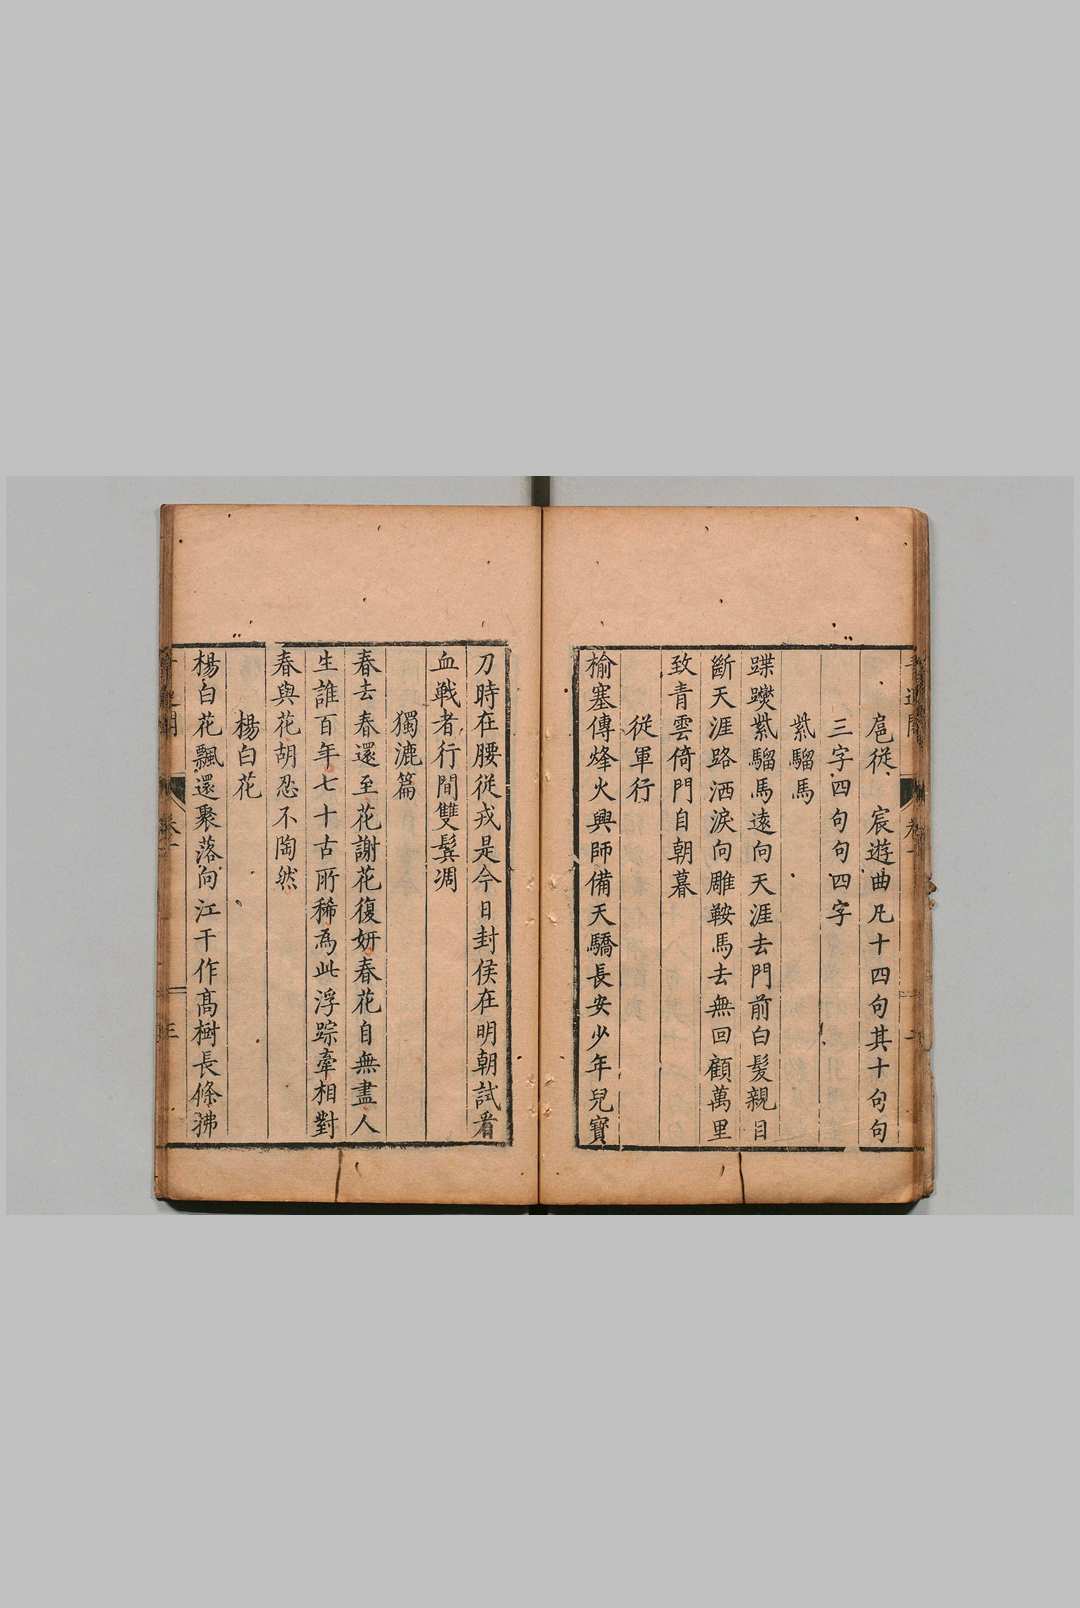 扈從 宸遊曲凡十四句其十句句
三字四句句四字
紫騮馬
蹀躞紫騮馬遠向天涯去門前白髮親目
斷天涯路洒淚向雕鞍馬去無回顧萬里
致青雲倚門自朝暮
従軍行
榆塞傳烽火興師備天驕長安少年兒寶
刀時在腰従戎是今日封侯在明朝試看
血戰者行間雙鬂凋
獨漉篇
春去春還至花謝花復妍春花自無盡人
生誰百年七十古所稀為此浮踪牽相對
春與花胡忍不陶然
楊白花
楊白花飄還聚落向江干作高樹長條拂
卷一
三